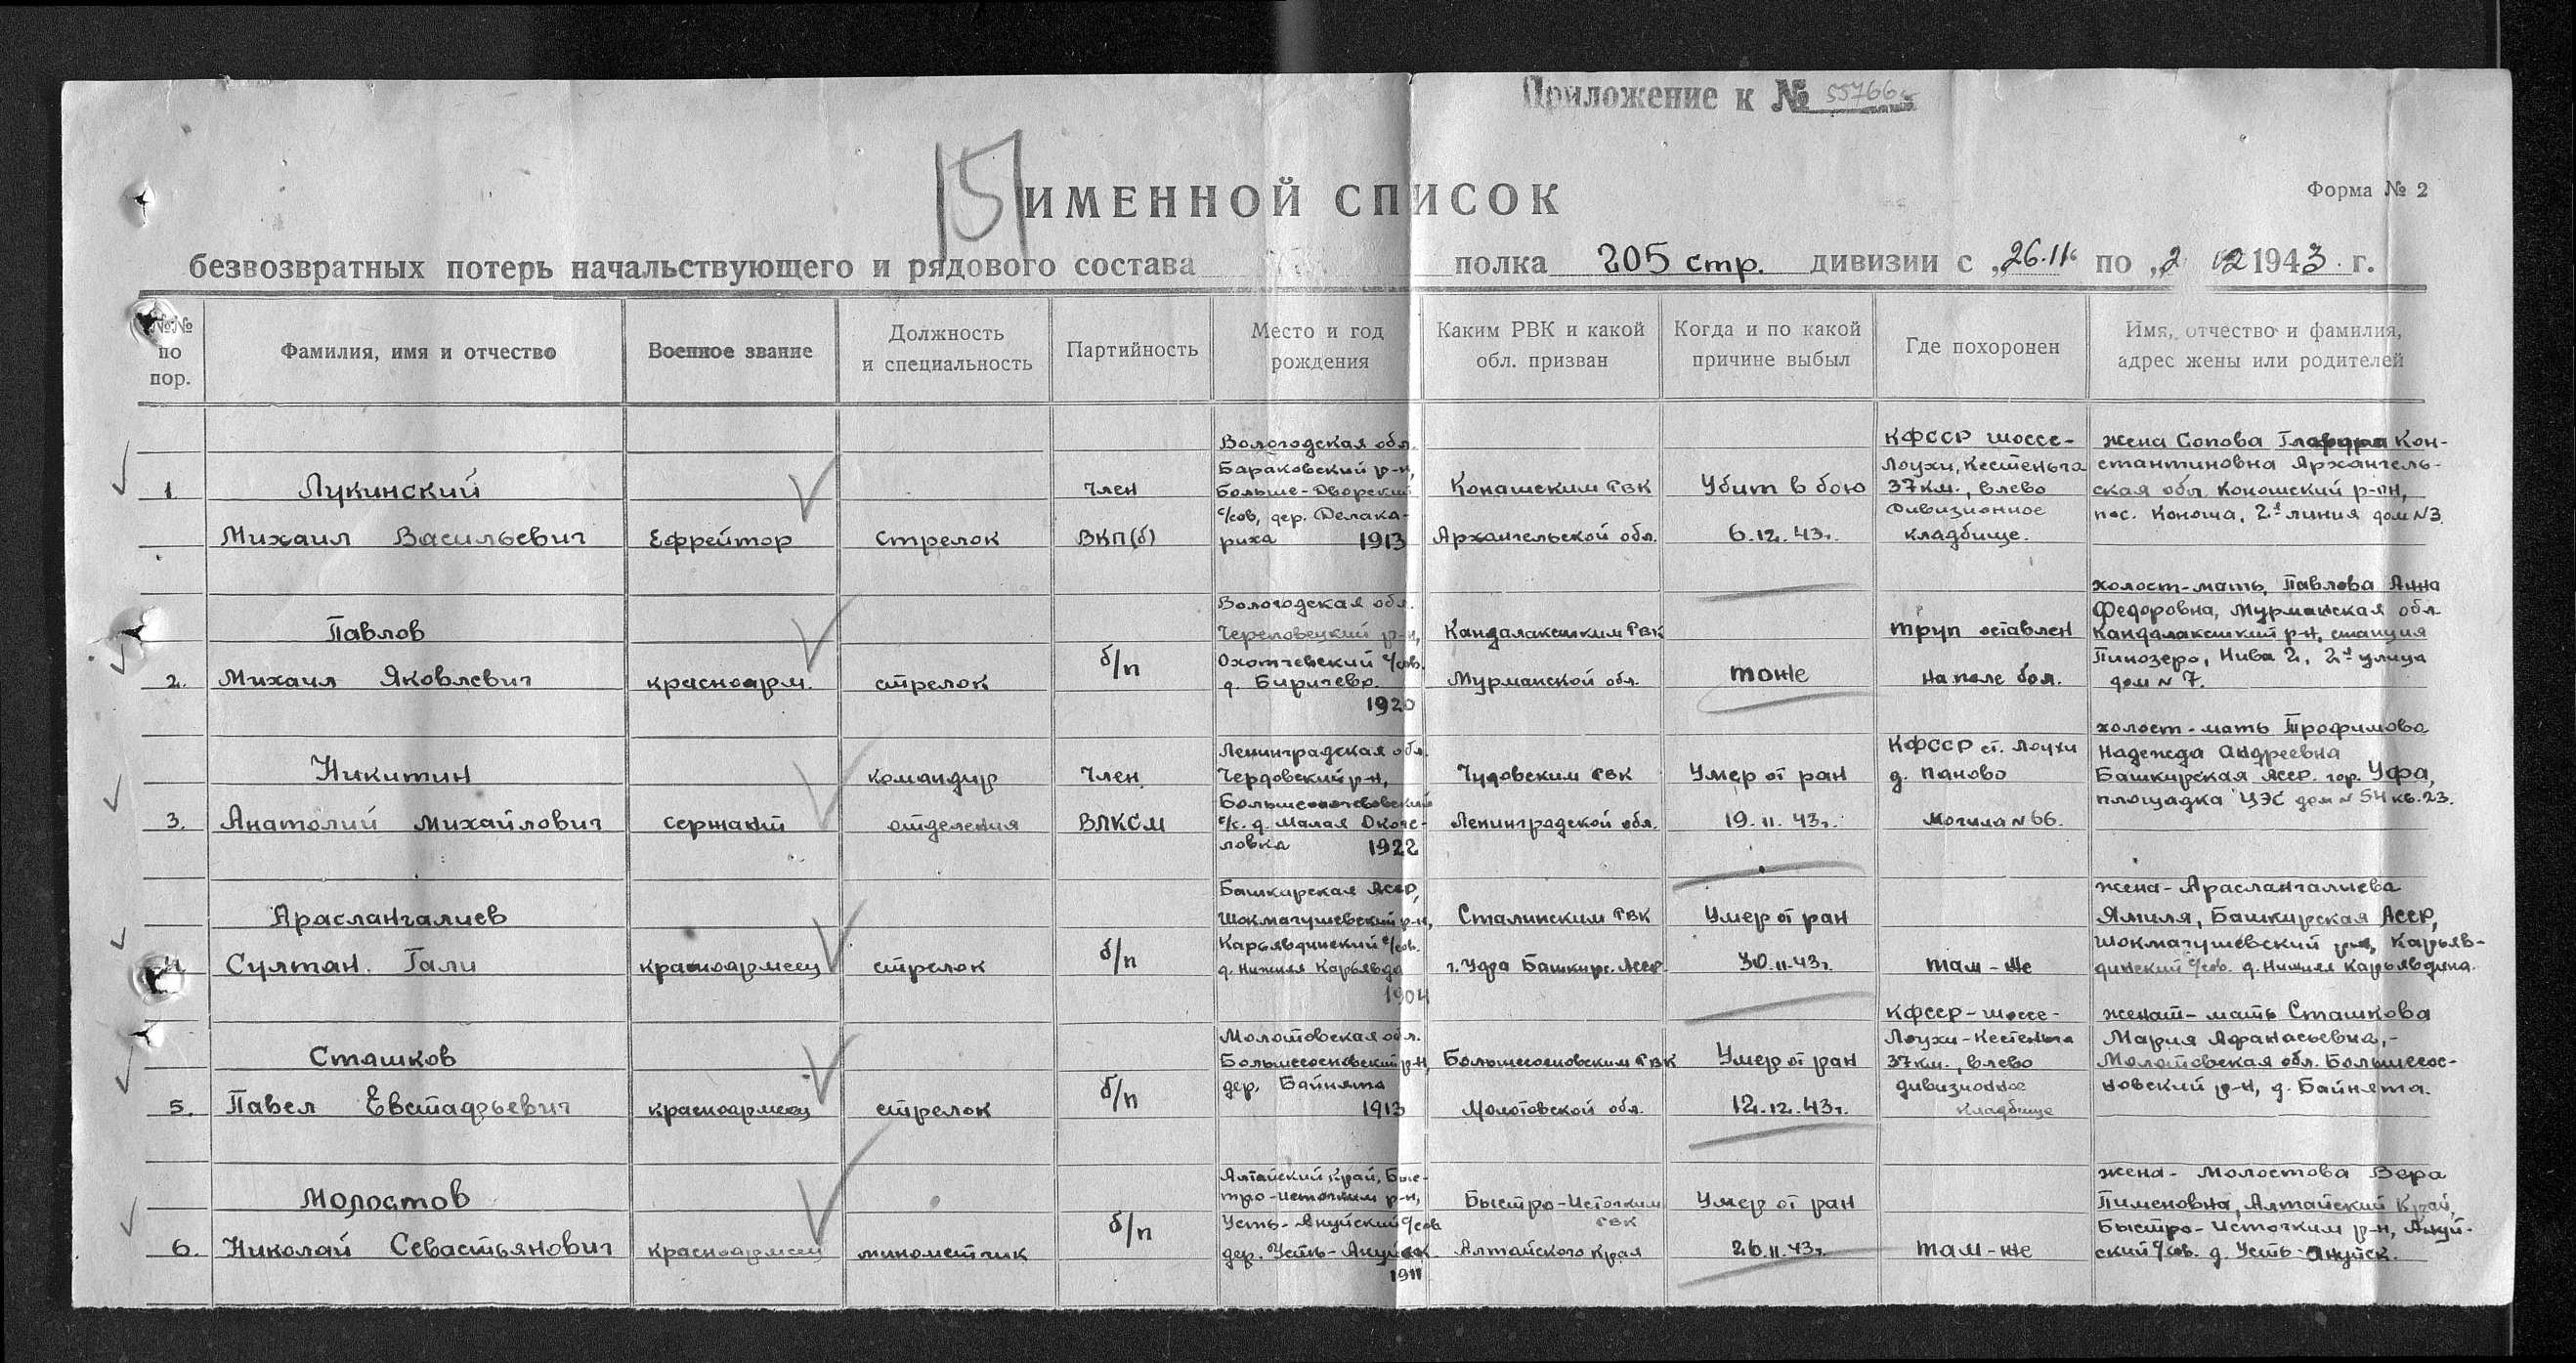 Приложение к № 55766с
15
ИМЕННОЙ СПИСОК
Форма № 2
безвозвратных потерь начальствующего и рядового состава полка 205 стр. дивизии с „26.11“ по „2 12 1943 г.
№№ по пор.
Фамилия, имя и отчество
Военное звание
Должность и специальность
Партийность
Место и год рождения
Каким РВК и какой обл. призван
Когда и по какой причине выбыл
Где похоронен
Имя, отчество и фамилия, адрес жены или родителей
1.
Лукинский
Михаил Васильевич
Ефрейтор
Стрелок
Член
ВКП(б)
Вологодская обл.
Бараковский р-н,
Больше-Дворский
с/сов, дер. Делака-
риха 1913
Конашским РВК
Архангельской обл.
Убит в бою
6.12.43г.
КФССР шоссе-
Лоухи, Кестеньга
37км., влево
дивизионное
кладбище.
жена Сопова Кон-
стантиновна Архангель-
ская обл. Коношский р-он,
пос. Коноша, 2-я линия дом N3.
2.
Павлов
Михаил Яковлевич
красноарм.
стрелок
б/п
Вологодская обл.
Череповецкий р-н,
Охотчевский с/сов.
д. Биричево.
1920
Кандалакским РВК
Мурманской обл.
тоже
труп оставлен
на поле боя.
холост-мать, Павлова Анна
Федоровна, Мурманская обл.
Кандалакский р-н, станция
Пинозеро, Нива 2, 2-я улица
дом N 7.
3.
Никитин
Анатолий Михайлович
сержант
командир
отделения
Член
ВЛКСМ
Ленинградская обл.
р-н,
с/с. д. Малая
ловка 1922
Чудовским РВК
Ленинградской обл.
Умер от ран
19.11.43г.
КФССР ст. Лоухи
д. Паново
Могила N 66.
холост-мать Трофимова
Надежда Андреевна
Башкирская Асср. гор. Уфа,
площадка ЦЭС дом N 54 кв.23.
4
Араслангалиев
Султан. Гали
красноармеец
стрелок
б/п
Башкирская Асср,
Шокмагушевский р-н,
Карьявдинский с/сов.
д. Нижняя Карьявда
1904
Сталинским РВК
г. Уфа Башкир. Асср.
Умер от ран
30.11.43г.
там-же
жена-Араслангалиева
Ямиля, Башкирская Асср,
Шокмагушевский р-н, Карьяв-
динский с/сов. д. Нижняя Карьявдина.
5.
Сташков
Павел Евстафьевич
красноармеец
стрелок
б/п
Молотовская обл.
Большесосновский р-н,
дер. Байнята
1913
Большесосновским РВК
Молотовской обл.
Умер от ран
12.12.43г.
КФССР-шоссе-
Лоухи-Кестеньга
37км., влево
дивизионное
кладбище
женат-мать Сташкова
Мария Афанасьевна,-
Молотовская обл. Большесос-
новский р-н, д. Байнята.
6.
Молостов
Николай Севастьянович
красноармеец
минометчик
б/п
Алтайский Край, Быс-
тро-Истокким р-н,
Усть-Ануйский с/сов
дер. Усть-Ануйск
1911
Быстро-Истокким
РВК
Алтайского Края
Умер от ран
26.11.43г.
там-же
жена-Молостова Вера
Пименовна, Алтайский Край,
Быстро-Истокким р-н, Ануй-
ский с/сов. д. Усть-Ануйск.